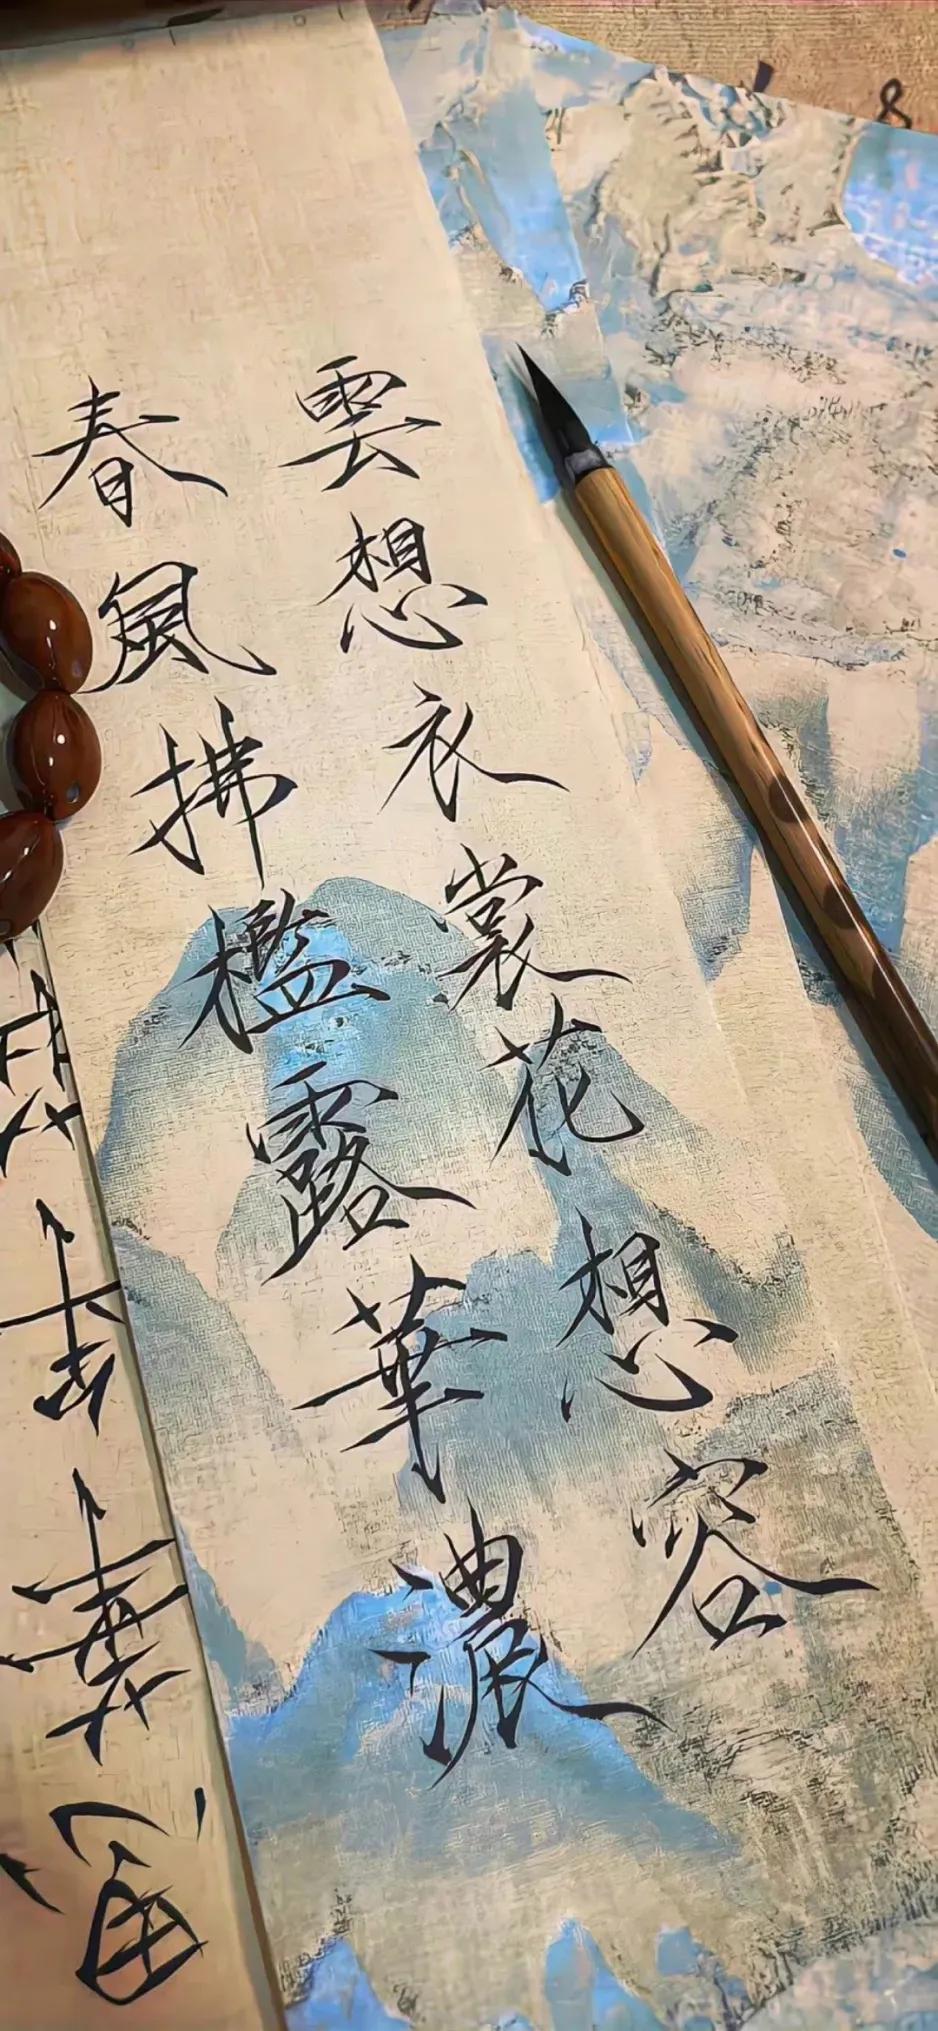 雲想衣裳花想容
春風拂檻露華濃